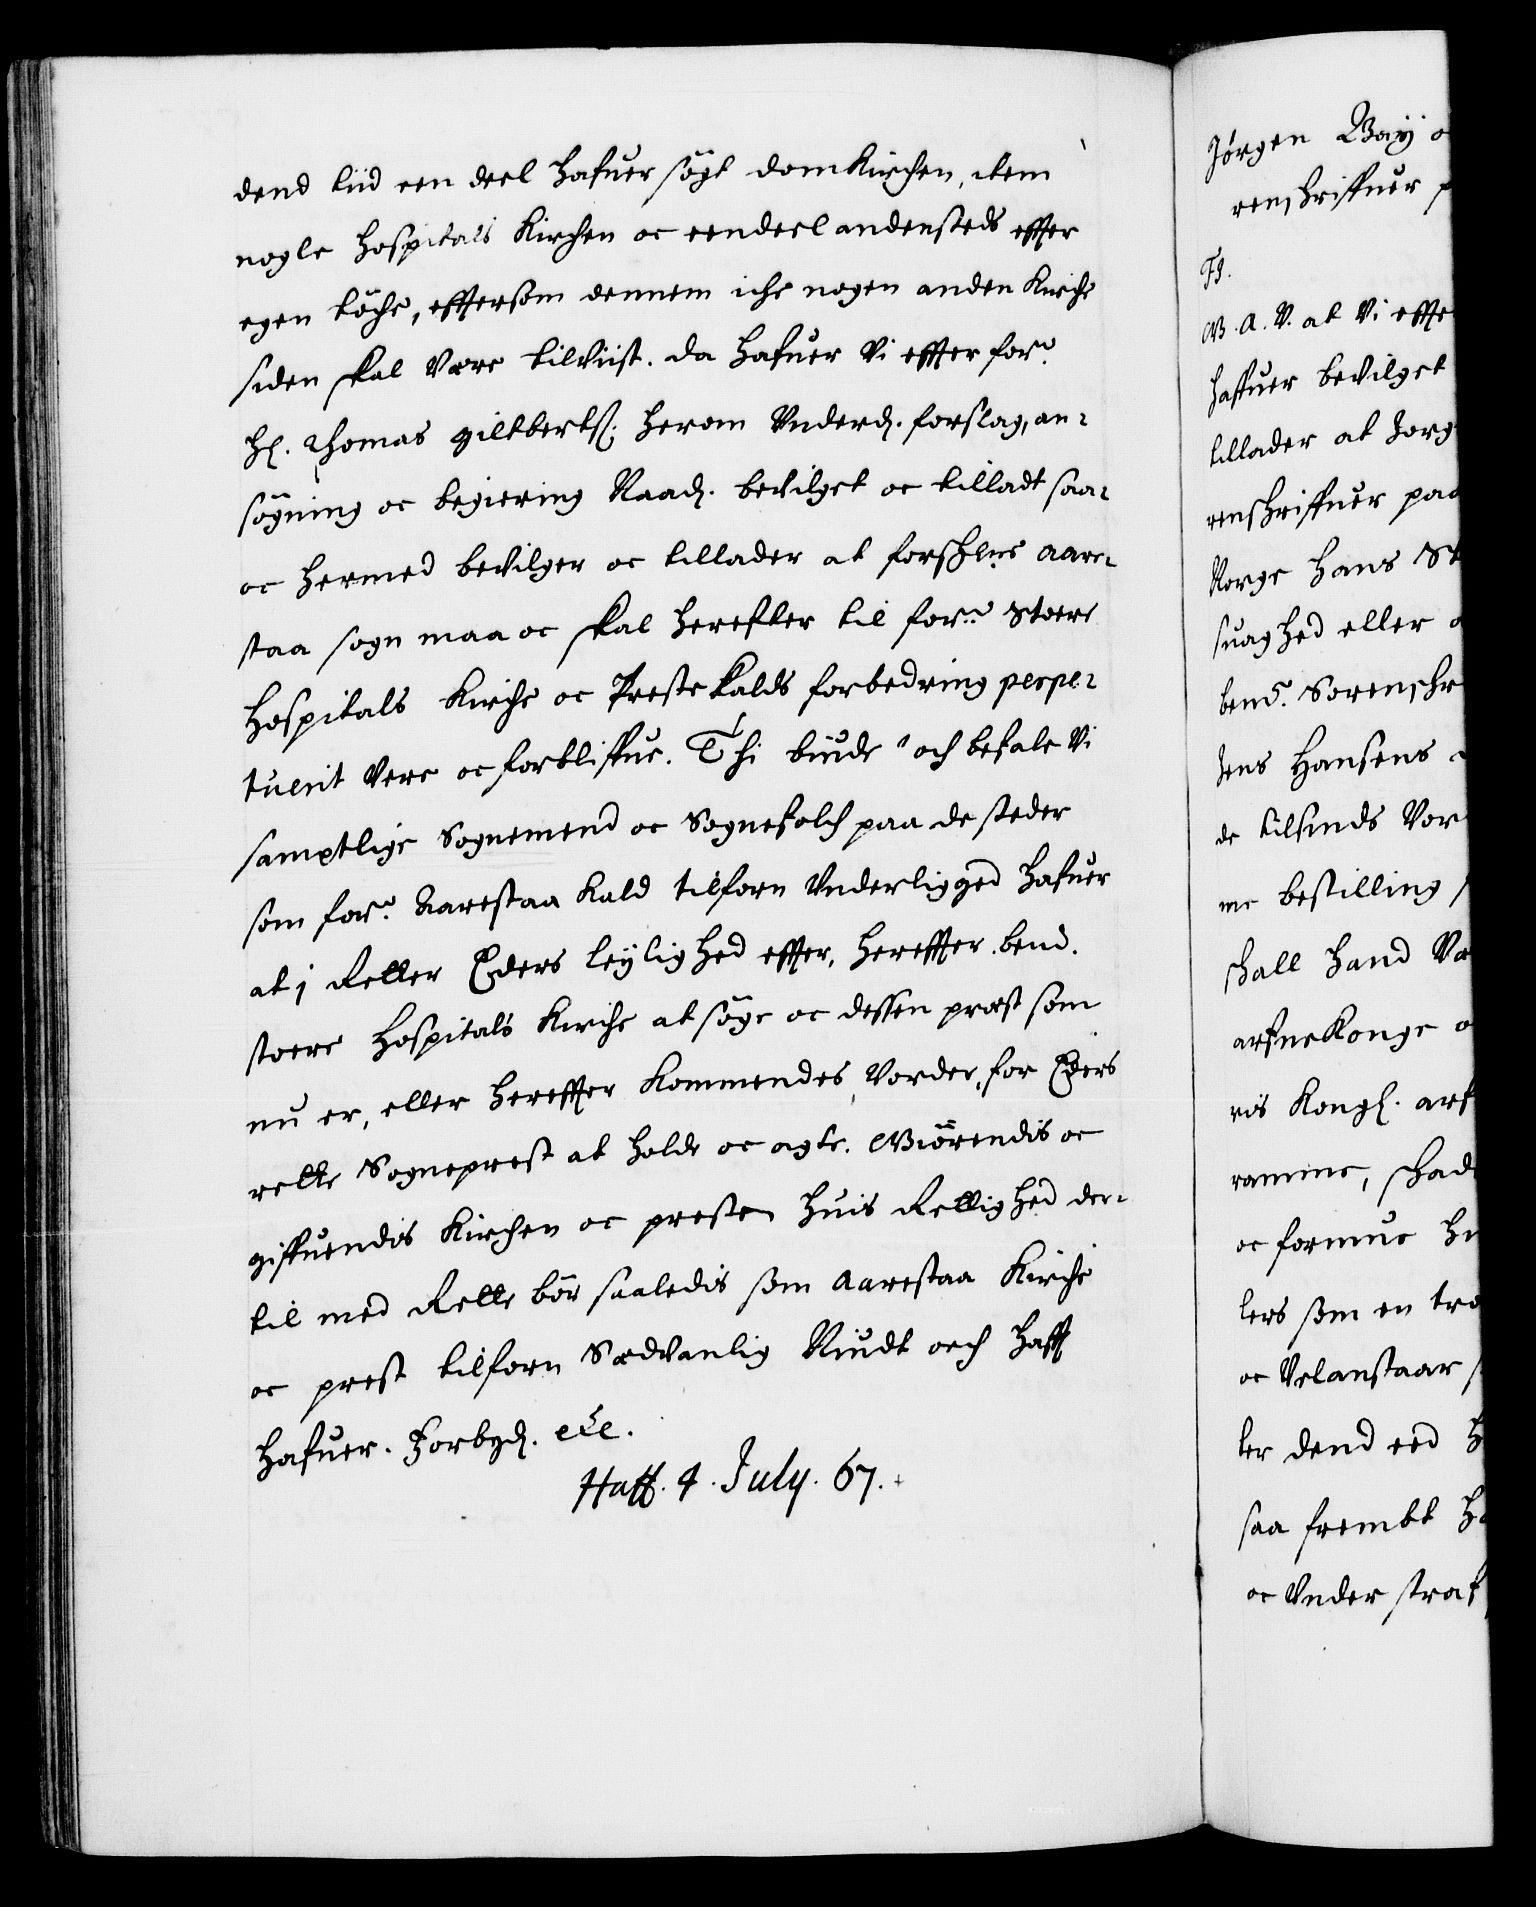 dend tiid een deel hafuer søgt domkirchen, item
nogle Hospitals Kirchen oc eendeel andensteds effter
egen töche, effersom dennem iche nogen anden Kirche
siden skal være tilviist. da hafuer Vi effter forᵉ
Hr. Thomas Giltberts: herom Underd. forslag, an-
søgning oc begiering Naad. bevilget oc tilladt saa-
oc hermed bevilger oc tillader at forschrᵉ Aare-
staa sogn maa oc skal herefter til forᵉ Stoere
Hospitals Kirche oc Prestekalds forbedring perpe-
tuerit Vere oc forbliffue. Thi biude och befale Vi
samptlige Sognemend oc Sognefolch paa de steder
som forᵉ Aarestaa Kald tilforn Underligged hafuer
at i Retter Eders leylighed effter, hereffter bemᵗᵉ
stoere Hospitals Kirche at søge oc dessen præst som
nu er, eller hereffter Kommendes Vorder, for Eders
rette Sogneprest at holde oc agte. Giörendis oc
giffuendis Kirchen oc presten huis Rettighed der-
til med Rette bör saaledis som Aarestaa Kirche
oc prest tilforn Sædvanlig Niudt och hafft
hafuer. Forbyd. etc.
Haff. 4. July. 67.
Jørgen Bay o
renschriffuer p
Fr.
G. A. V. at Vi effte
haffuer bevilget
tillader at Jorg
renschriffuer paa
Norge Hans St
suaghed eller
bemᵗᵉ Sorenschr
Jens Hansens
de tilsinds Vor
me bestilling
schall hand Væ
arfue Konge o
ris Kongl. arf
ramme, schad
oc formue hi
lers som en tro
oc Velanstaar
ter dend eed h
saa frembt ha
oc Under straf